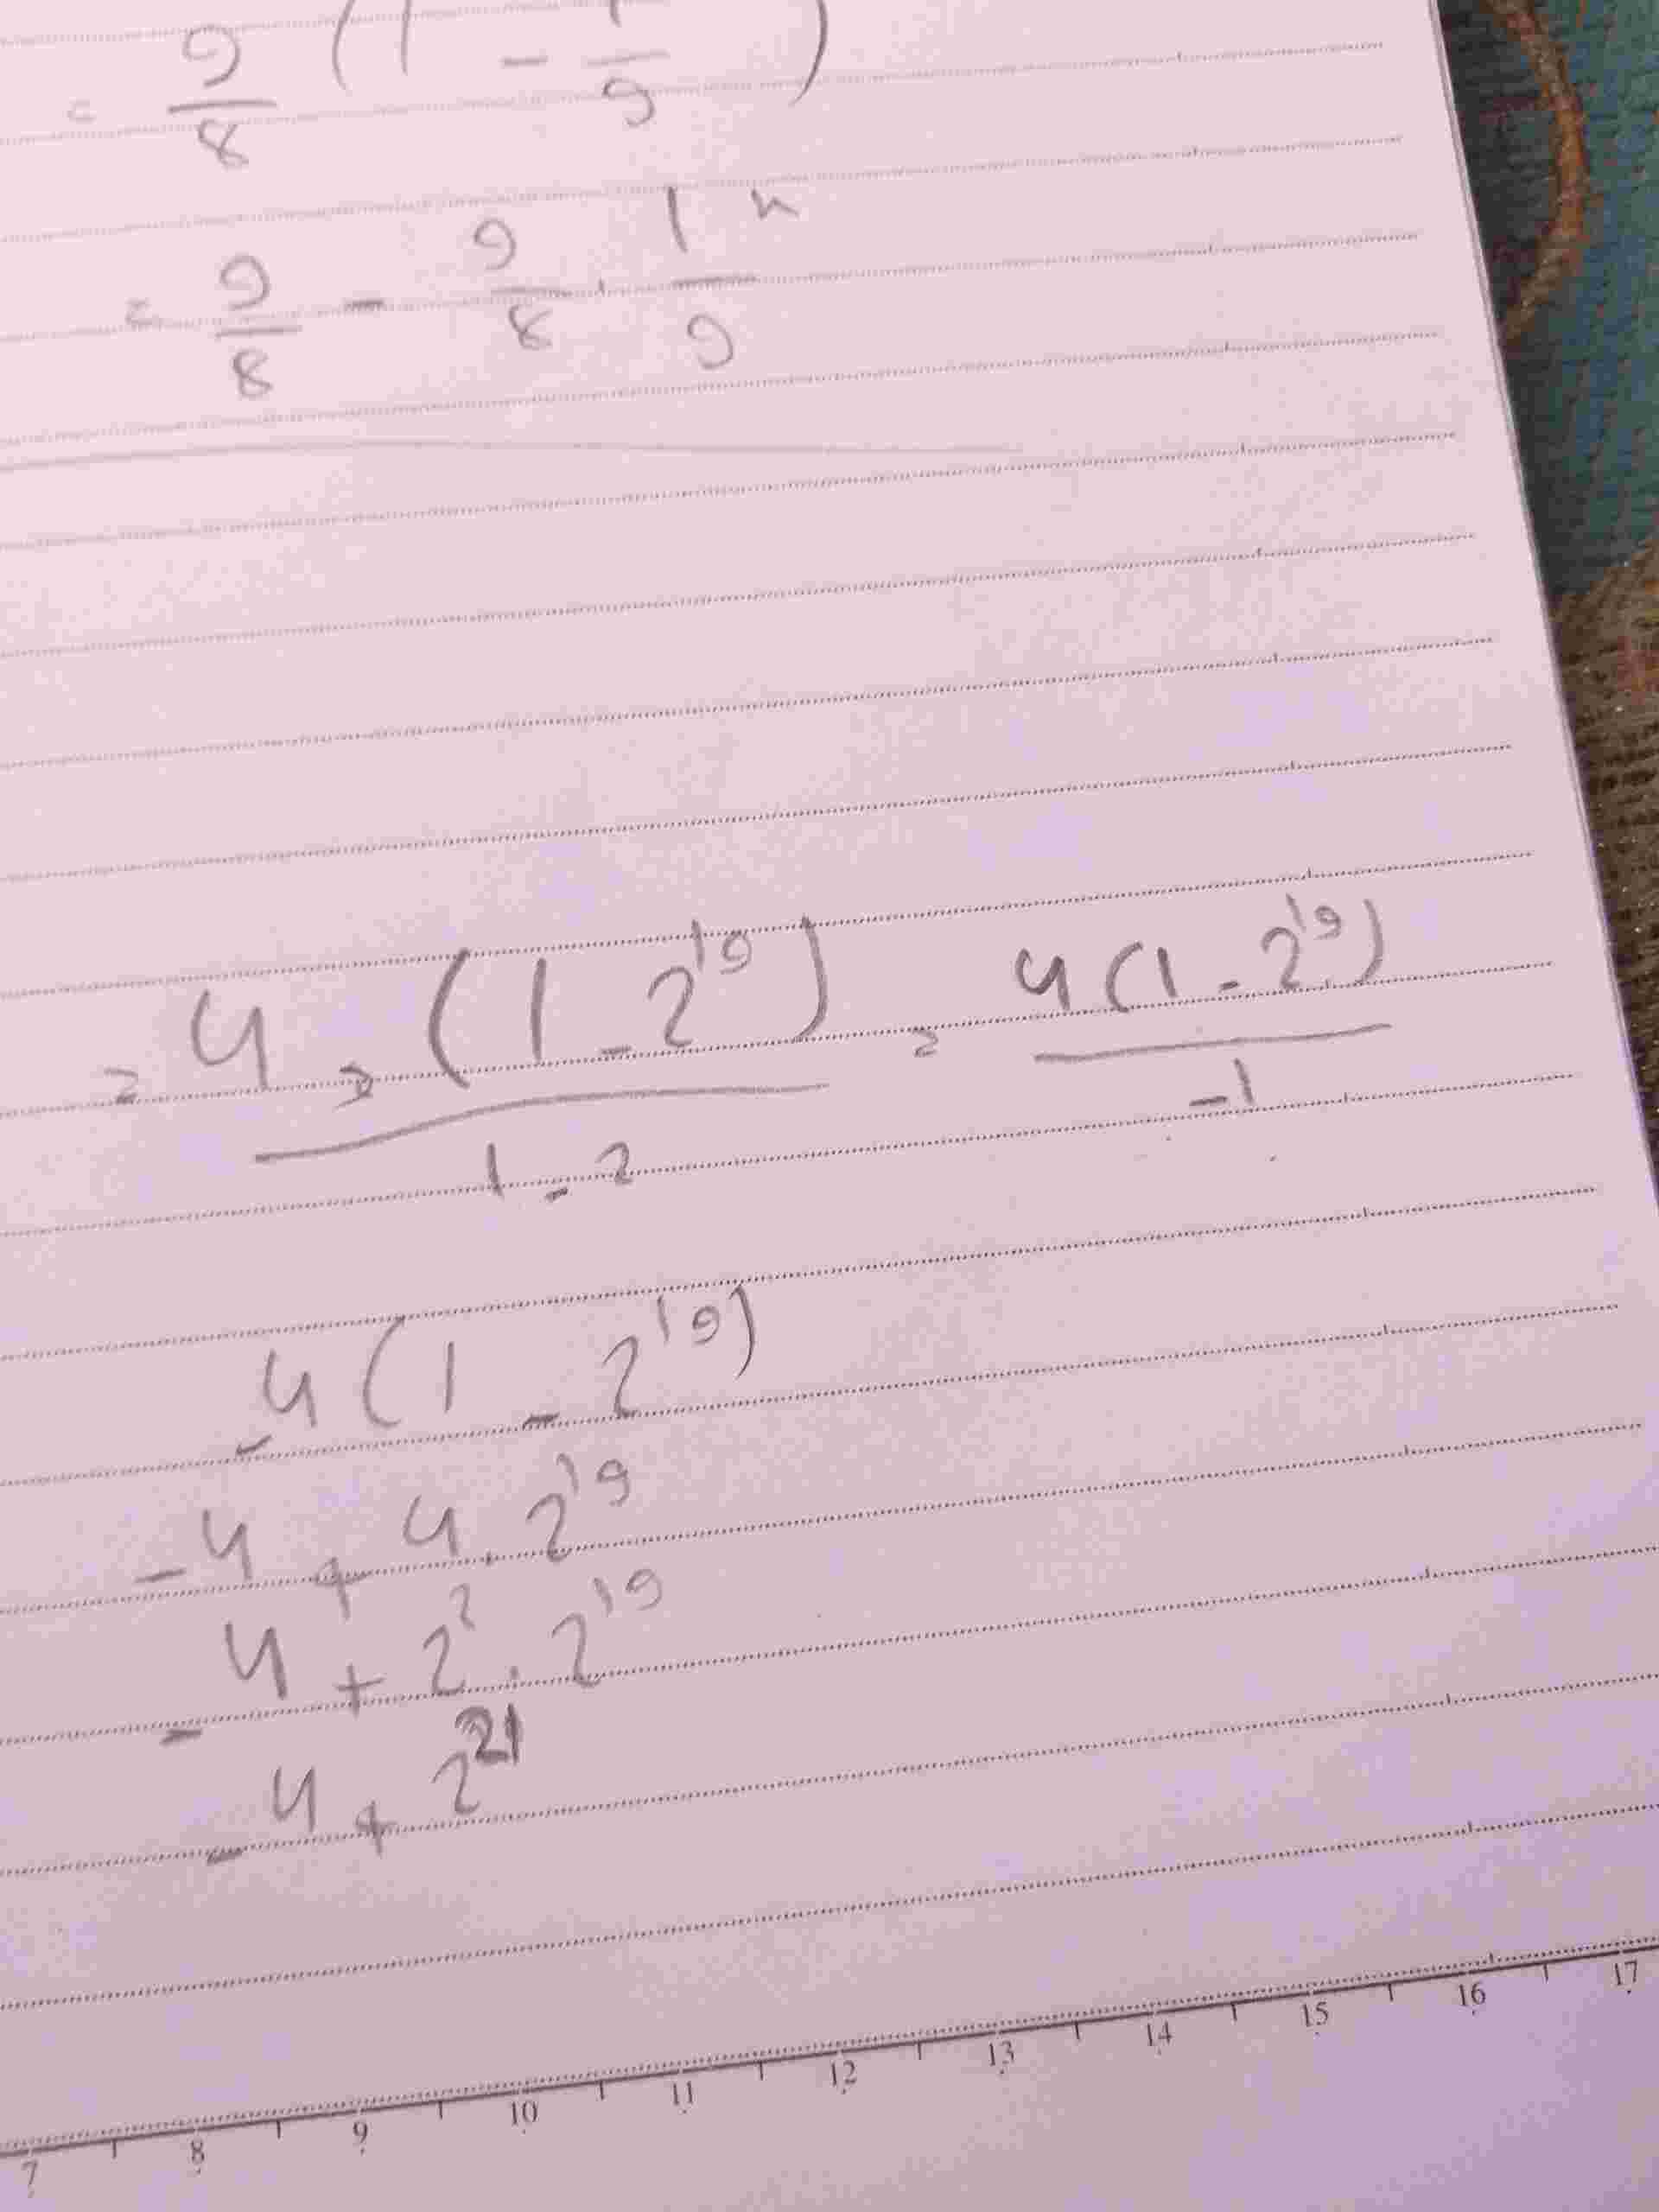 = 9/8 (1 - 1/9)
= 9/8 - 9/8 . 1/9 n
= 4 × (1 - 2^19) / 1 - 2 = 4(1 - 2^19) / -1
-4(1 - 2^19)
-4 + 4 . 2^19
-4 + 2^2 . 2^19
-4 + 2^21
7 8 9 10 11 12 13 14 15 16 17